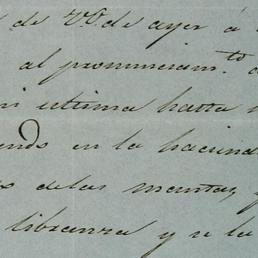 de VV. de ayer á
al pronunciam.to
ultima hasta
en la hacienda
de las mantas, y
libranza y a la